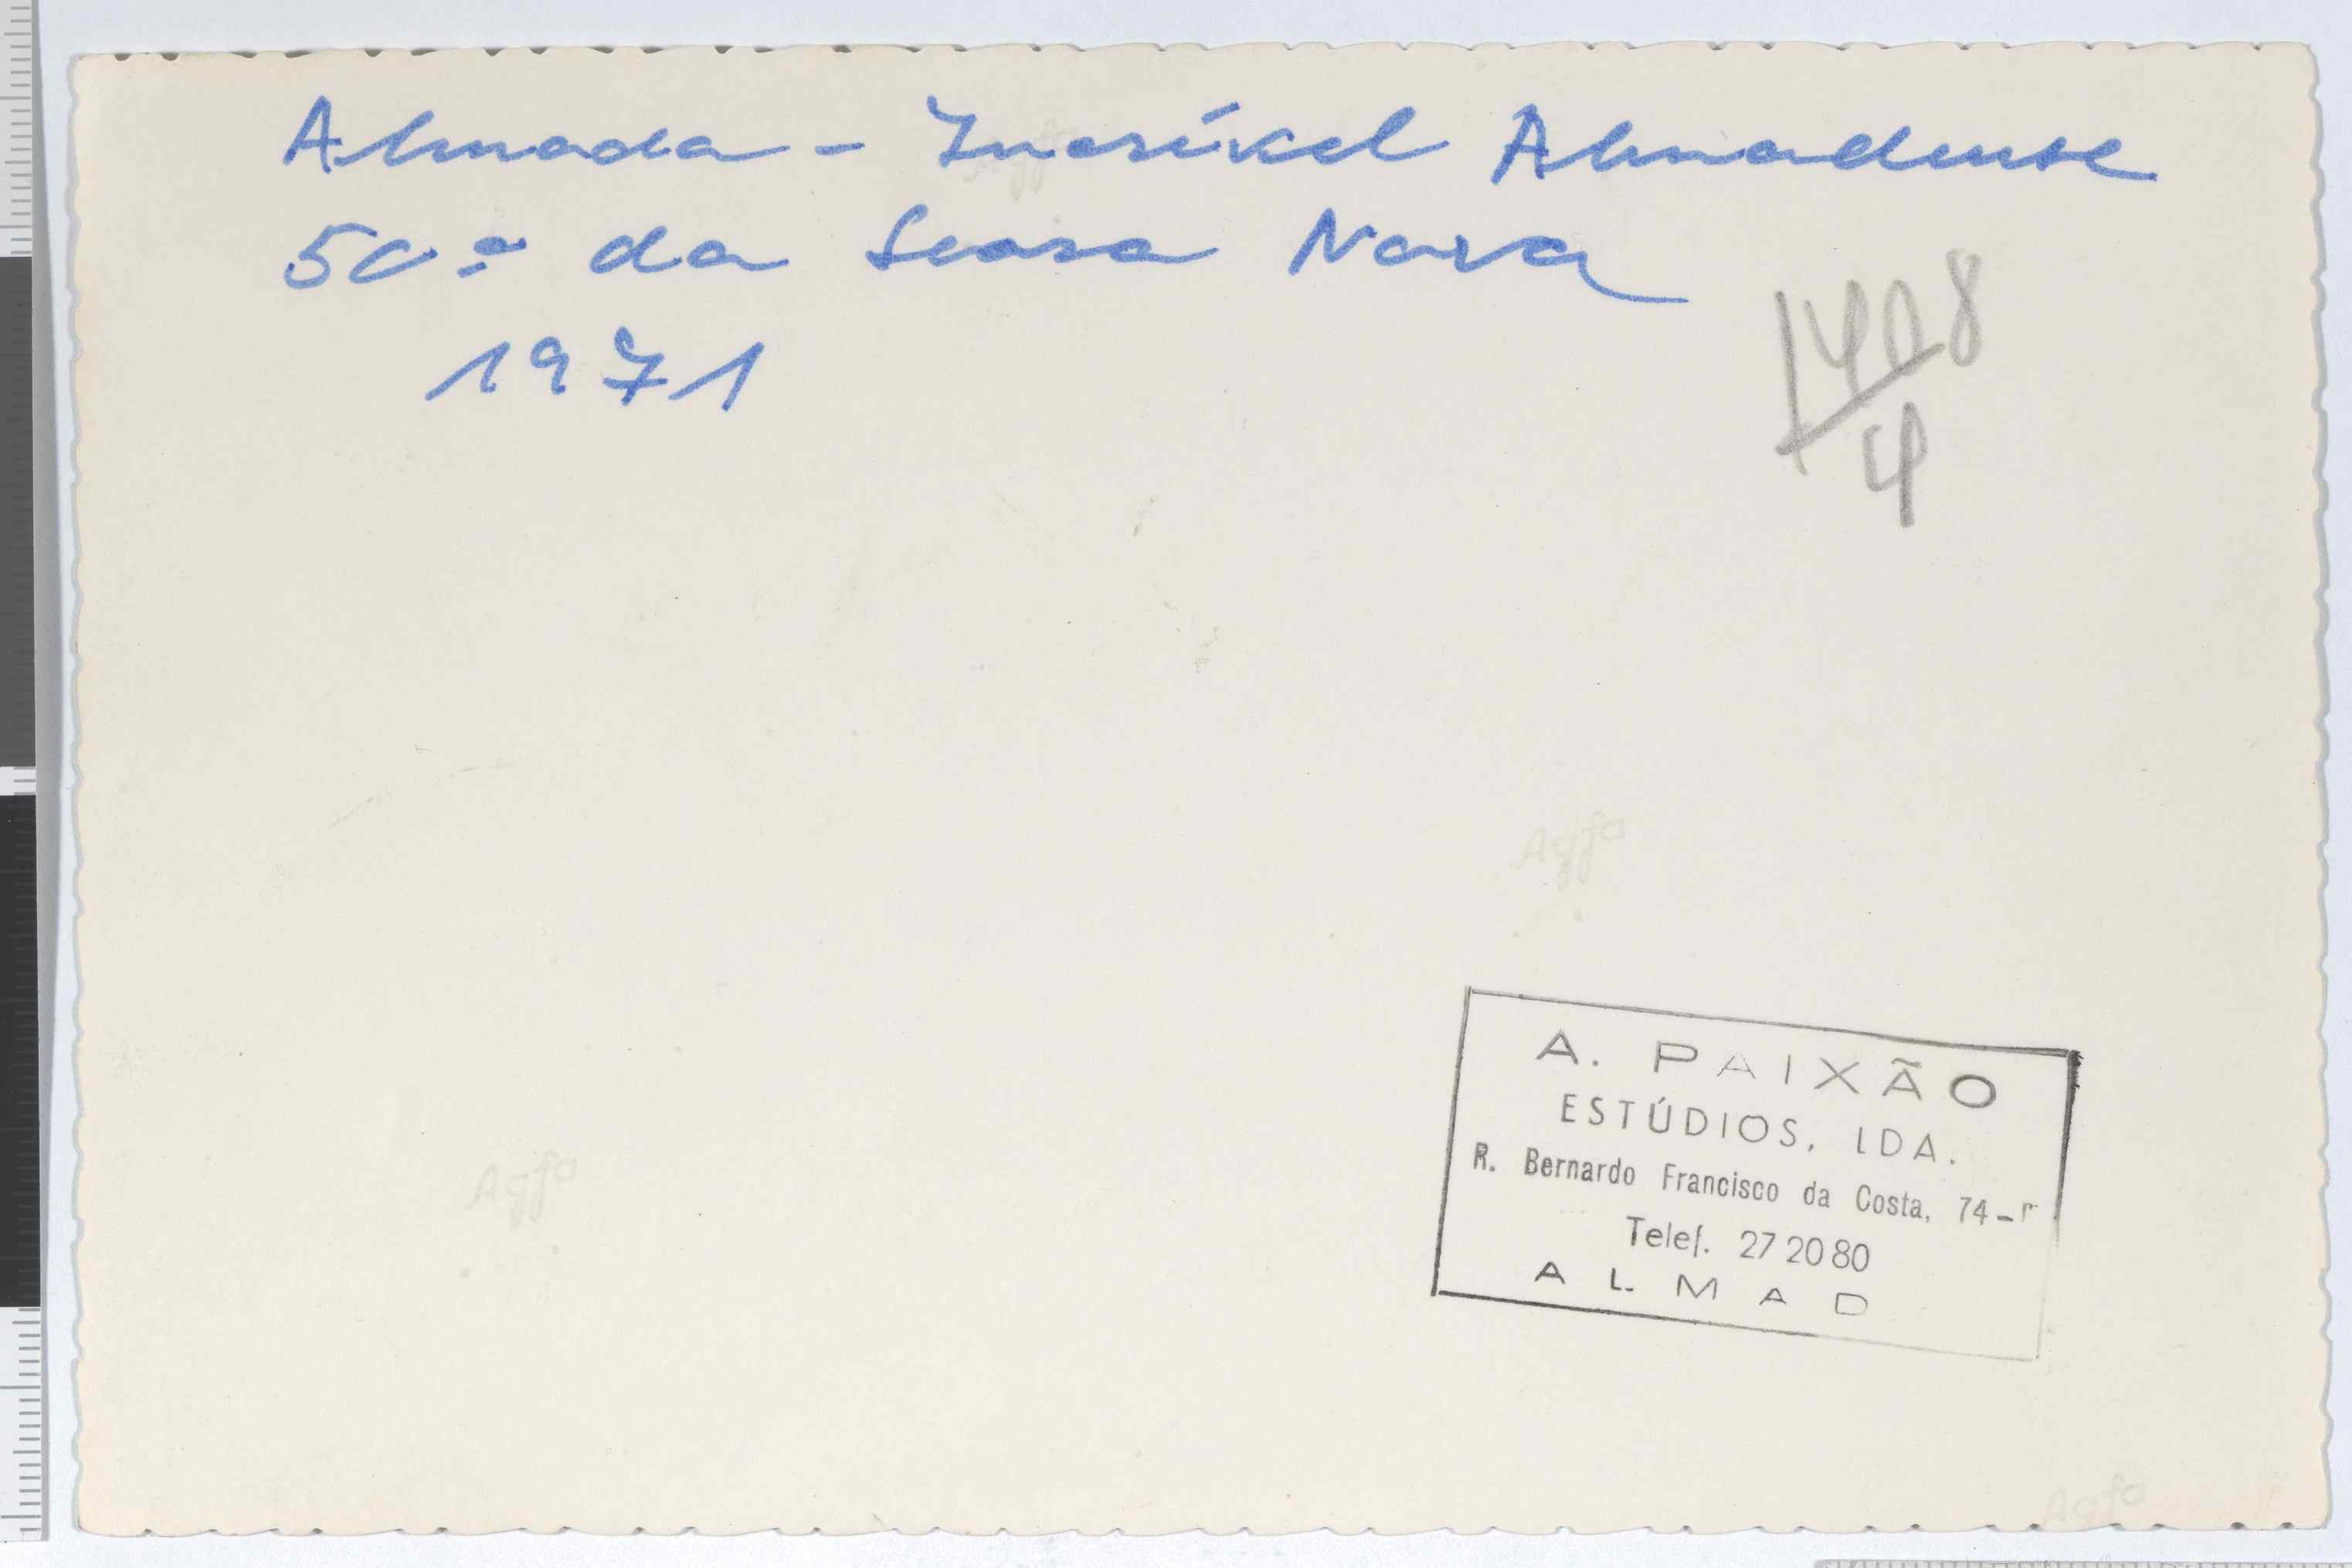 Almada - Incrível Almadense
50.º da Seara Nova
1971
1408
4
Agfa
A. PAIXÃO
ESTÚDIOS, LDA.
R. Bernardo Francisco da Costa, 74-
Telef. 27 20 80
ALMAD
Agfa
Agfa